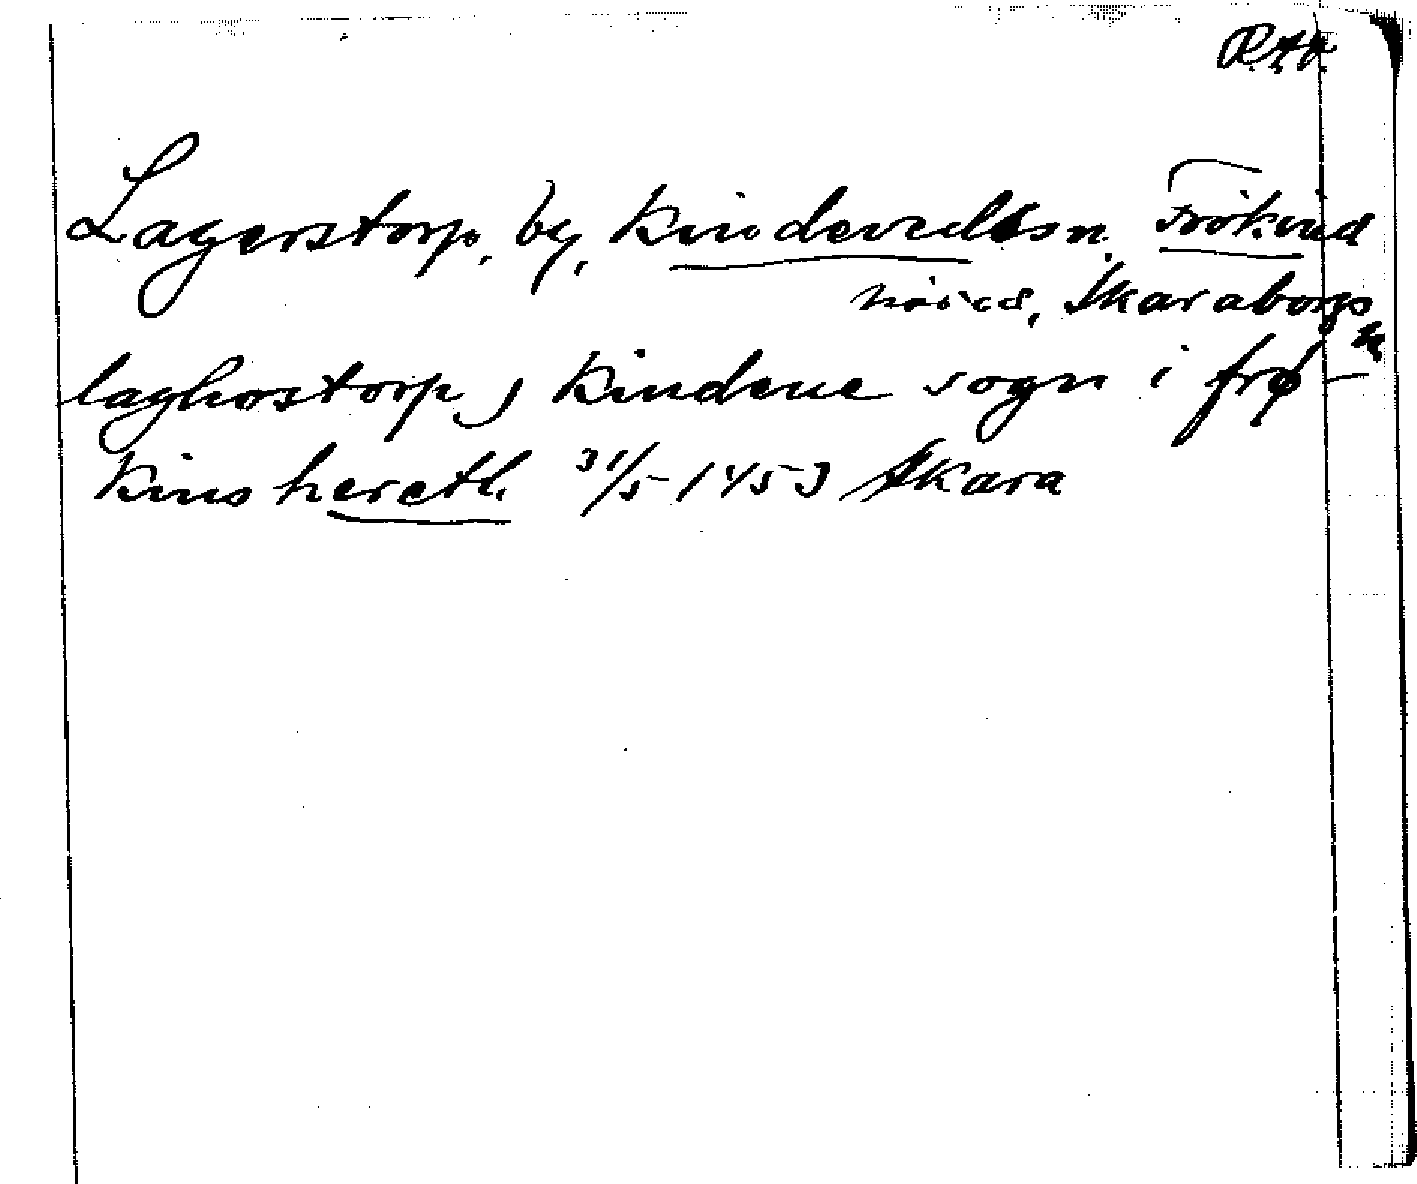 R.A.P.
Lagerstorp, by, Kindeveds sn. Frökind
härad, Skaraborgs
laghostorp, Kindeue sogn i frø-
kins hereth 31/5 1453 Skara